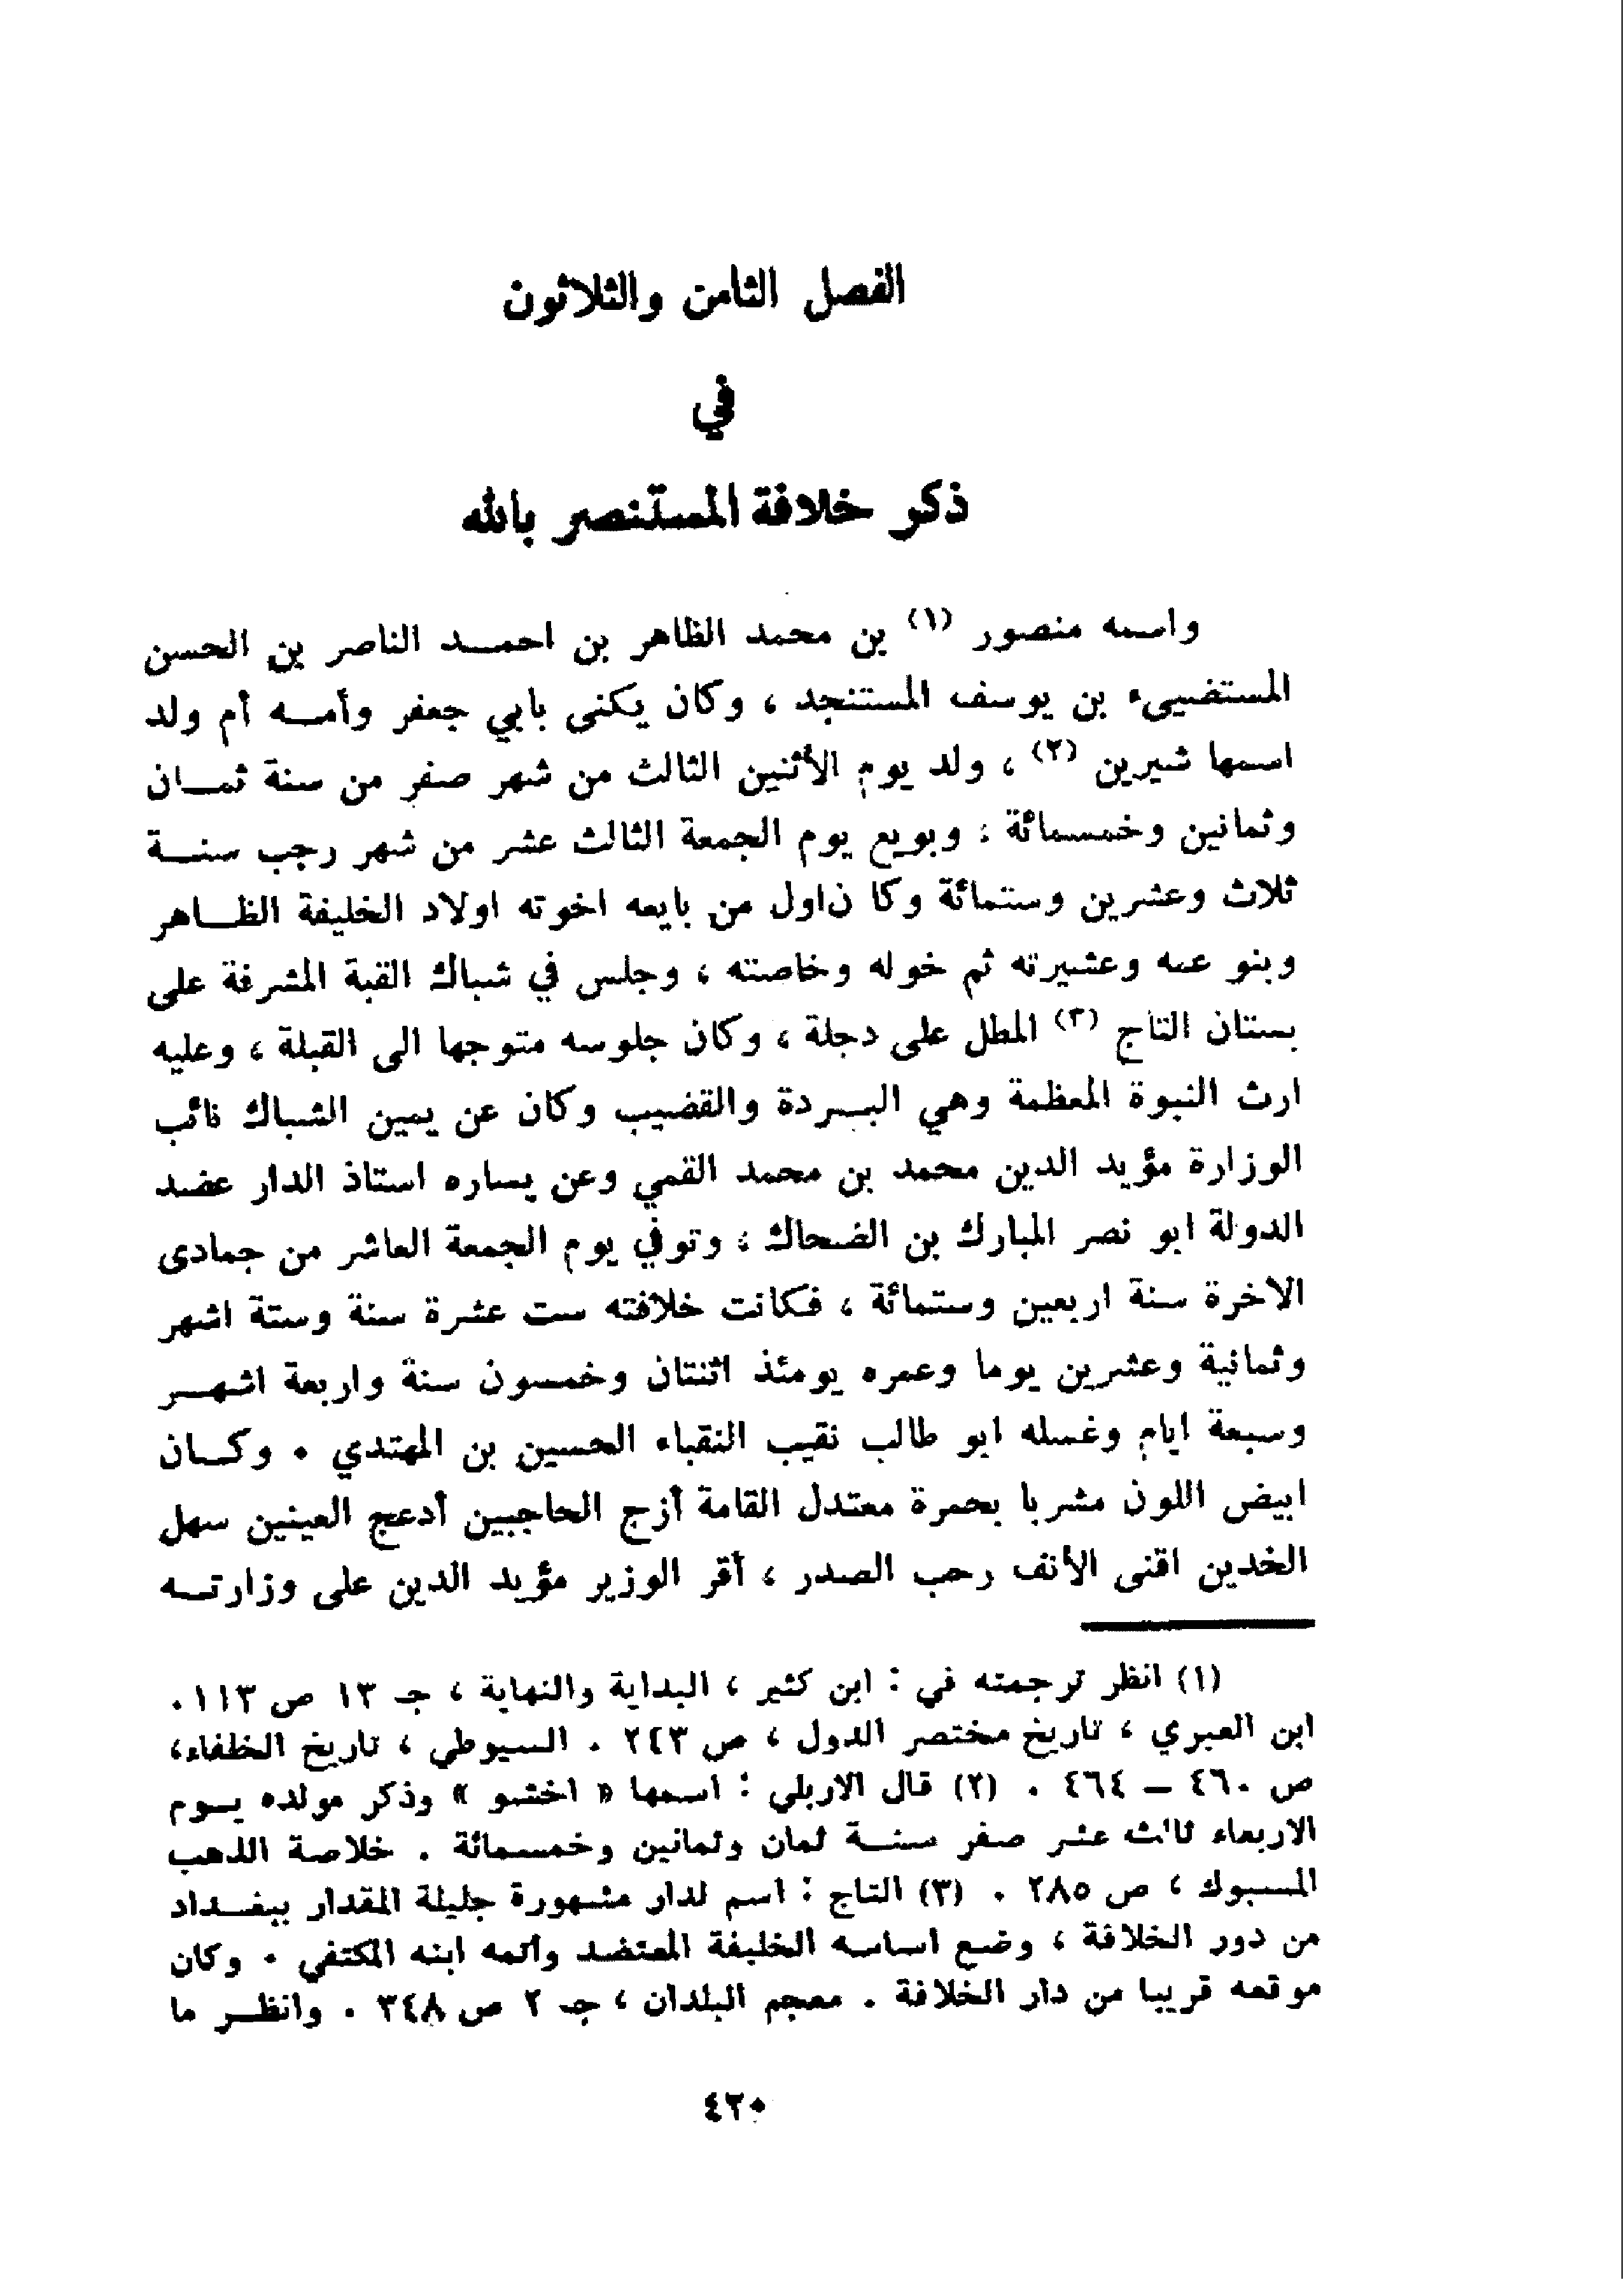 الفصل الثامن والثلاثون
في
ذكر خلافة المستنصر بالله
واسمه منصور (١) بن محمد الظاهر بن احمـــد الناصر بن الحسن
المستضييء بن يوسف المستنجد ، وكان يكنى بابي جعفر وأمـــه أم ولد
اسمها شيرين (٢) ، ولد يوم الأثنين الثالث من شهر صفر من سنة ثمــان
وثمانين وخمسمائة ؛ وبويع يوم الجمعة الثالث عشر من شهر رجب سنــة
ثلاث وعشرين وستمائة وكا ن‌اول من بايعه اخوته اولاد الخليفة الظــاهر
وبنو عمه وعشيرته ثم خوله وخاصته ، وجلس في شباك القبة المشرفة على
بستان التاج (٣) المطل على دجلة ، وكان جلوسه متوجها الى القبلة ، وعليه
ارث النبوة المعظمة وهي البــردة والقضيب وكان عن يمين الشباك نائب
الوزارة مؤيد الدين محمد بن محمد القمي وعن يساره استاذ الدار عضد
الدولة ابو نصر المبارك بن الضحاك ، وتوفي يوم الجمعة العاشر من جمادى
الاخرة سنة اربعين وستمائة ، فكانت خلافته ست عشرة سنة وستة اشهر
وثمانية وعشرين يوما وعمره يومئذ اثنتان وخمسون سنة واربعة اشهــر
وسبعة ايام وغسله ابو طالب نقيب النقباء الحسين بن المهتدي ٠ وكــان
ابيض اللون مشربا بحمرة معتدل القامة أزج الحاجبين أدعج العينين سهل
الخدين اقنى الأنف رحب الصدر ، أقر الوزير مؤيد الدين على وزارتــه
(١) انظر ترجمته في : ابن كثير ، البداية والنهاية ، جـ ١٣ ص ١١٣ ٠
ابن العبري ، تاريخ مختصر الدول ، ص ٢٤٣ ٠ السيوطي ، تاريخ الخلفاء،
ص ٤٦٠ – ٤٦٤ ٠ (٢) قال الاربلي : اسمها « اخشو » وذكر مولده يــوم
الاربعاء ثالث عشر صفر سنــة ثمان وثمانين وخمسمائة ٠ خلاصة الذهب
المسبوك ، ص ٢٨٥ ٠ (٣) التاج : اسم لدار مشهورة جليلة المقدار ببغــداد
من دور الخلافة ، وضع اساسه الخليفة المعتضد وأتمه ابنه المكتفي ٠ وكان
موقعه قريبا من دار الخلافة ٠ معجم البلدان ، جـ ٢ ص ٣٤٨ ٠ وانظــر ما
٤٢٠